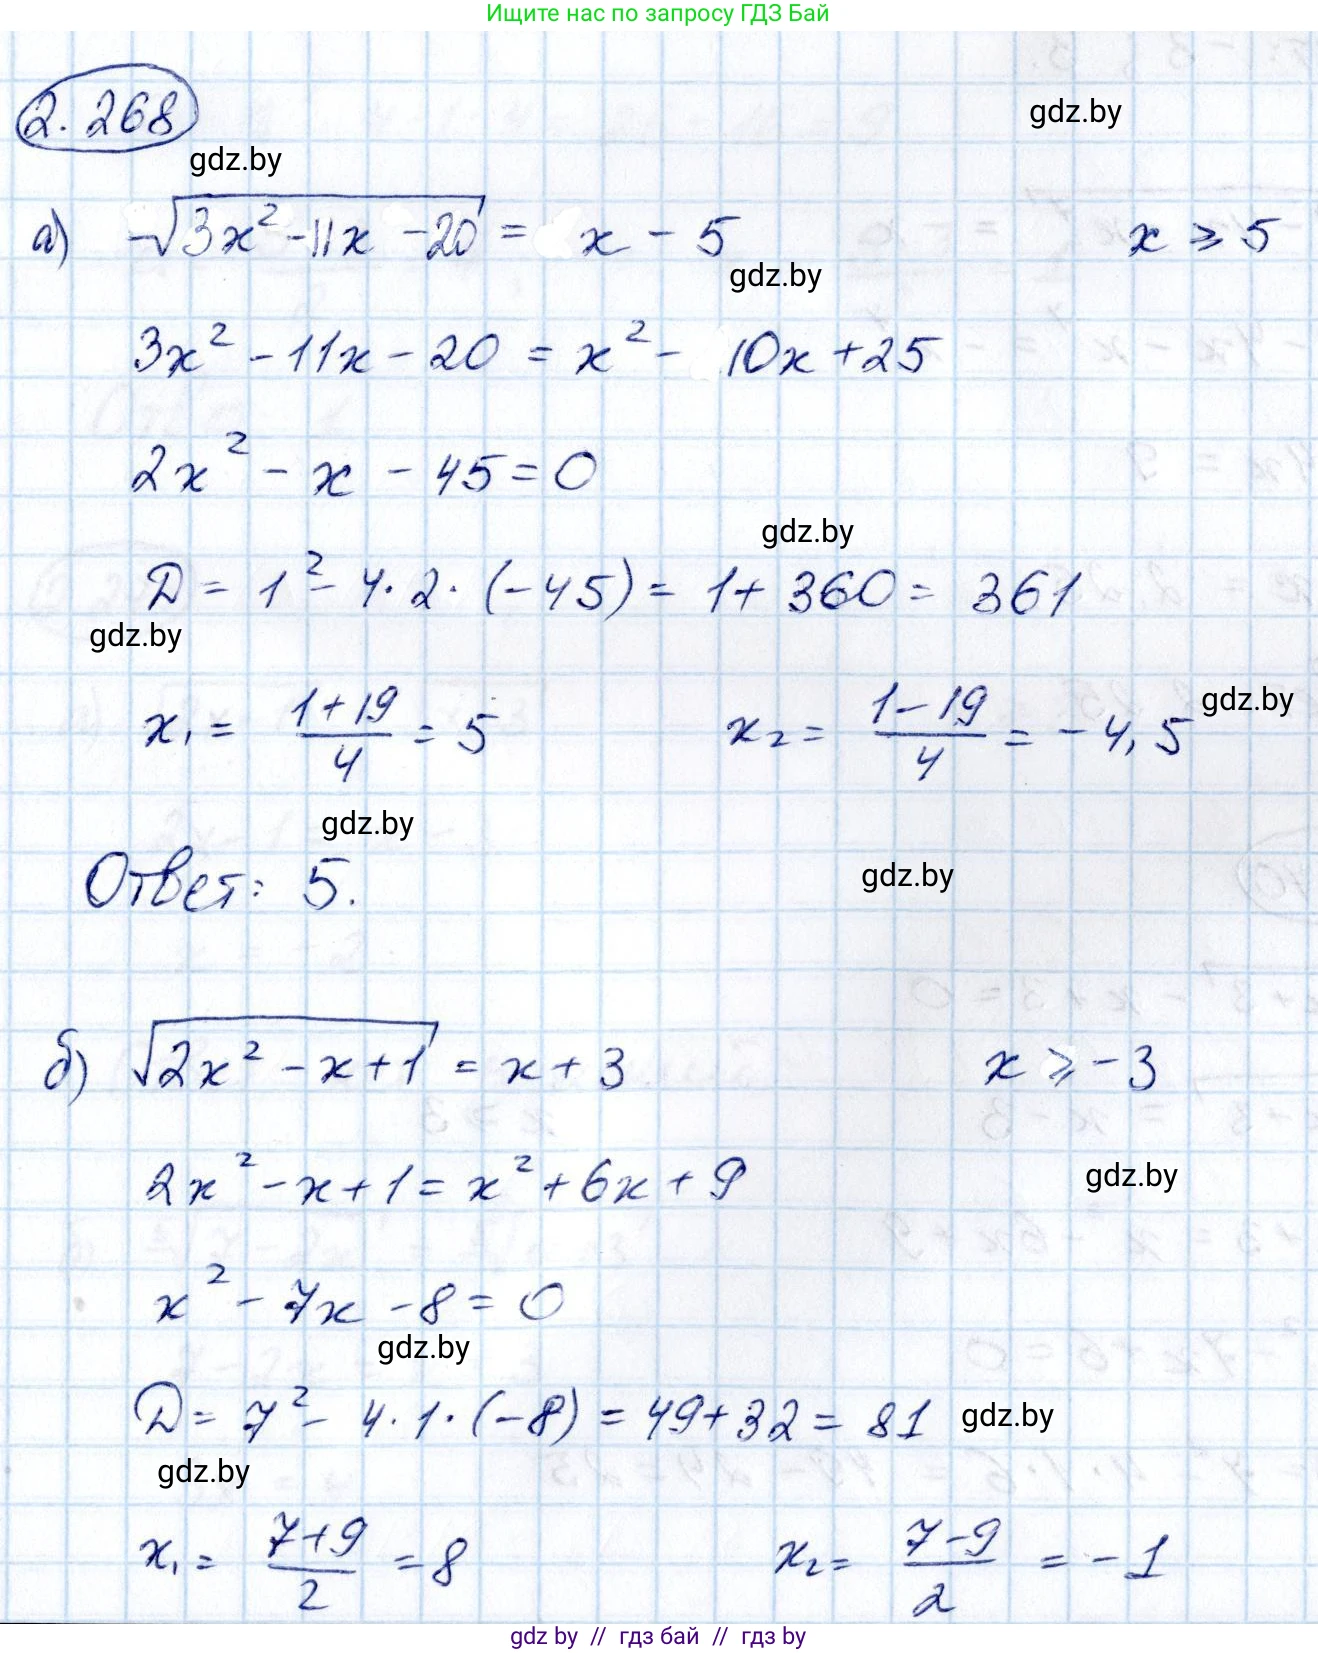 Ищите нас по запросу ГДЗ Бай
2.268
gdz.by
gdz.by
а) √3x² - 11x - 20 = x - 5 x ≥ 5
gdz.by
3x² - 11x - 20 = x² - 10x + 25
2x² - x - 45 = 0
gdz.by
D = 1² - 4 · 2 · (-45) = 1 + 360 = 361
gdz.by
x₁ = (1+19)/4 = 5 x₂ = (1-19)/4 = -4,5
gdz.by
gdz.by
Ответ: 5.
gdz.by
б) √2x² - x + 1 = x + 3 x ≥ -3
2x² - x + 1 = x² + 6x + 9
gdz.by
x² - 7x - 8 = 0
gdz.by
D = 7² - 4 · 1 · (-8) = 49 + 32 = 81
gdz.by
gdz.by
x₁ = (7+9)/2 = 8 x₂ = (7-9)/2 = -1
gdz by // гдз бай // гдз by